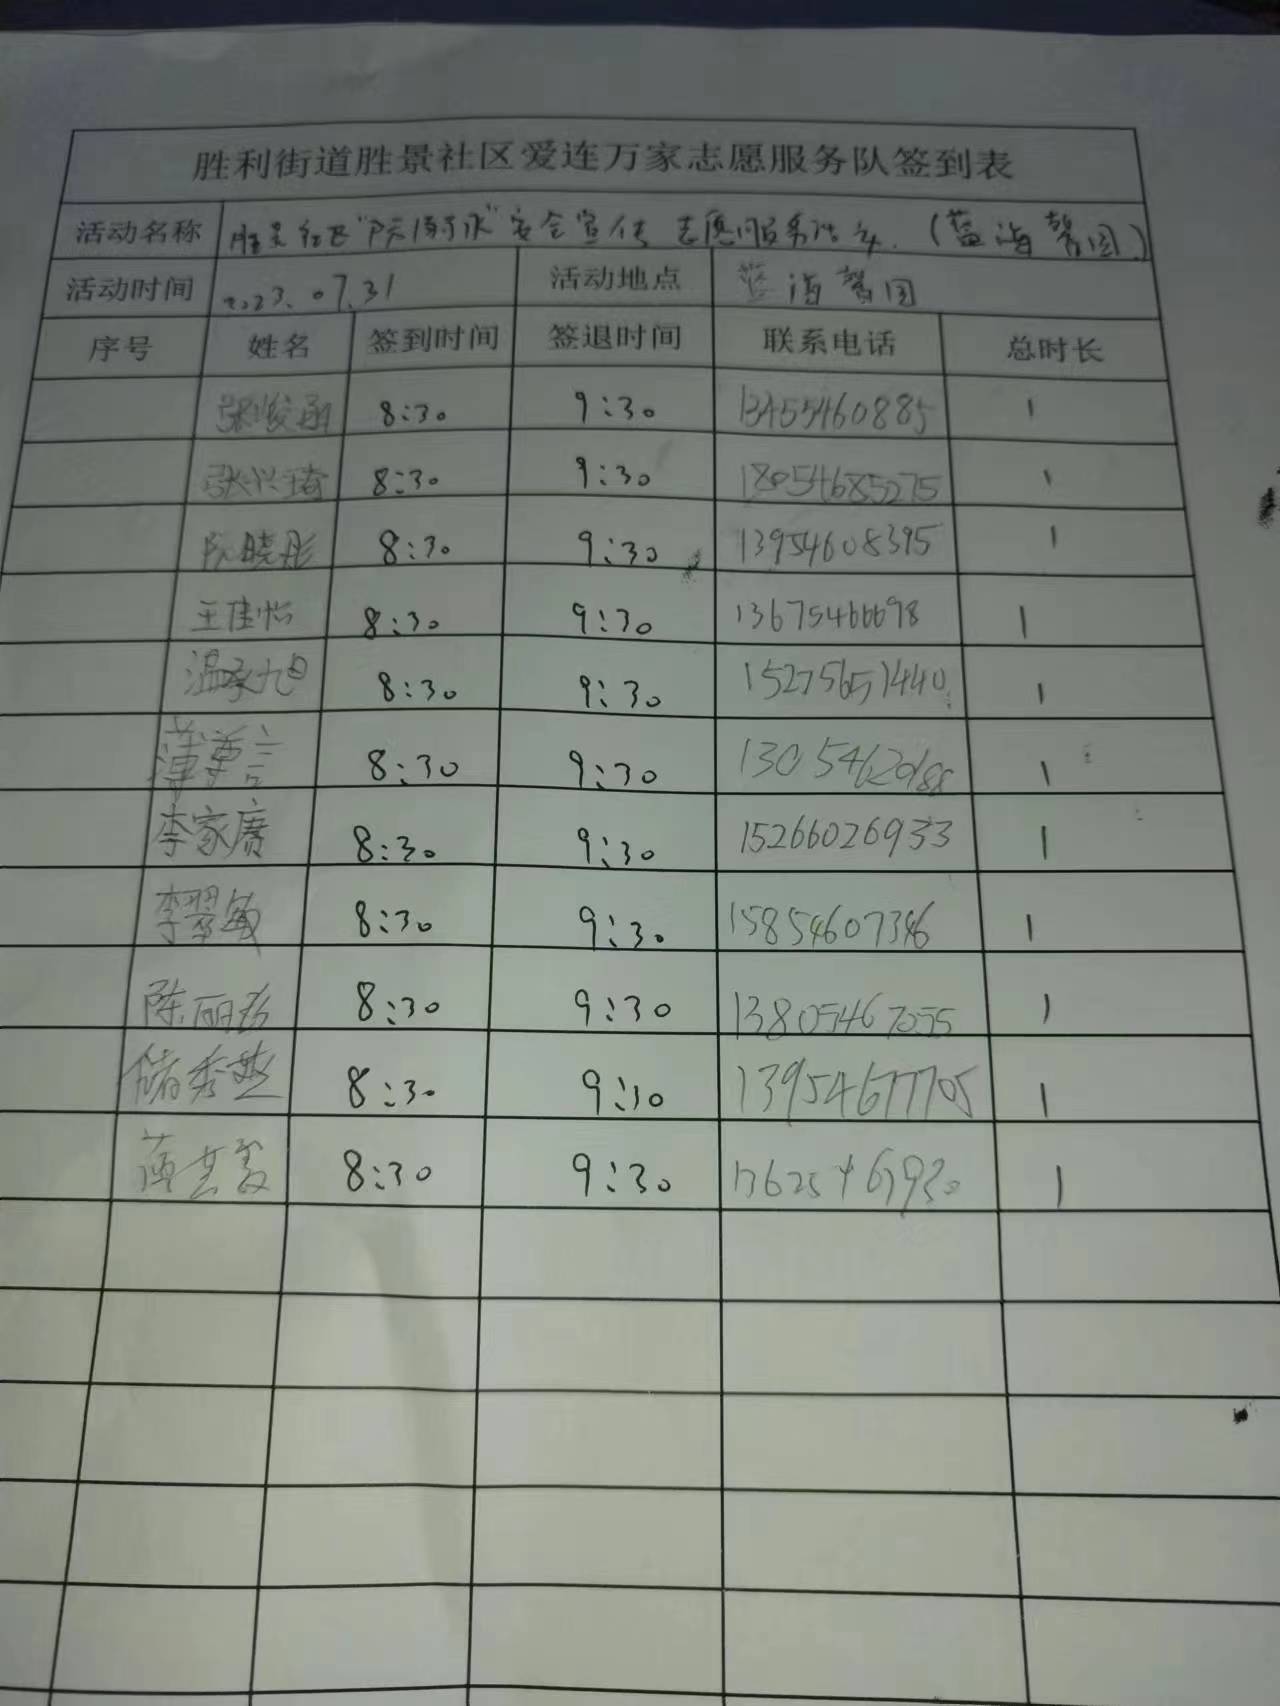 胜利街道胜景社区爱连万家志愿服务队签到表
活动名称 胜景社区“防溺水”安全宣传志愿服务活动.(蓝海馨园.)
活动时间 2023.07.31 活动地点 蓝海馨园
序号 姓名 签到时间 签退时间 联系电话 总时长
张俊 8:30 9:30 13455460885 1
张兴琦 8:30 9:30 18054685275 1
阮晓彤 8:30 9:30 13954608395 1
王佳怡 8:30 9:30 13675466698 1
温承旭 8:30 9:30 15275651440 1
薄尊言 8:30 9:30 1 
李家赓 8:30 9:30 15266026933 1
李翠敏 8:30 9:30 15854607346 1
陈丽珍 8:30 9:30 13805467055 1
储秀燕 8:30 9:30 13954677705 1
薄 8:30 9:30 1